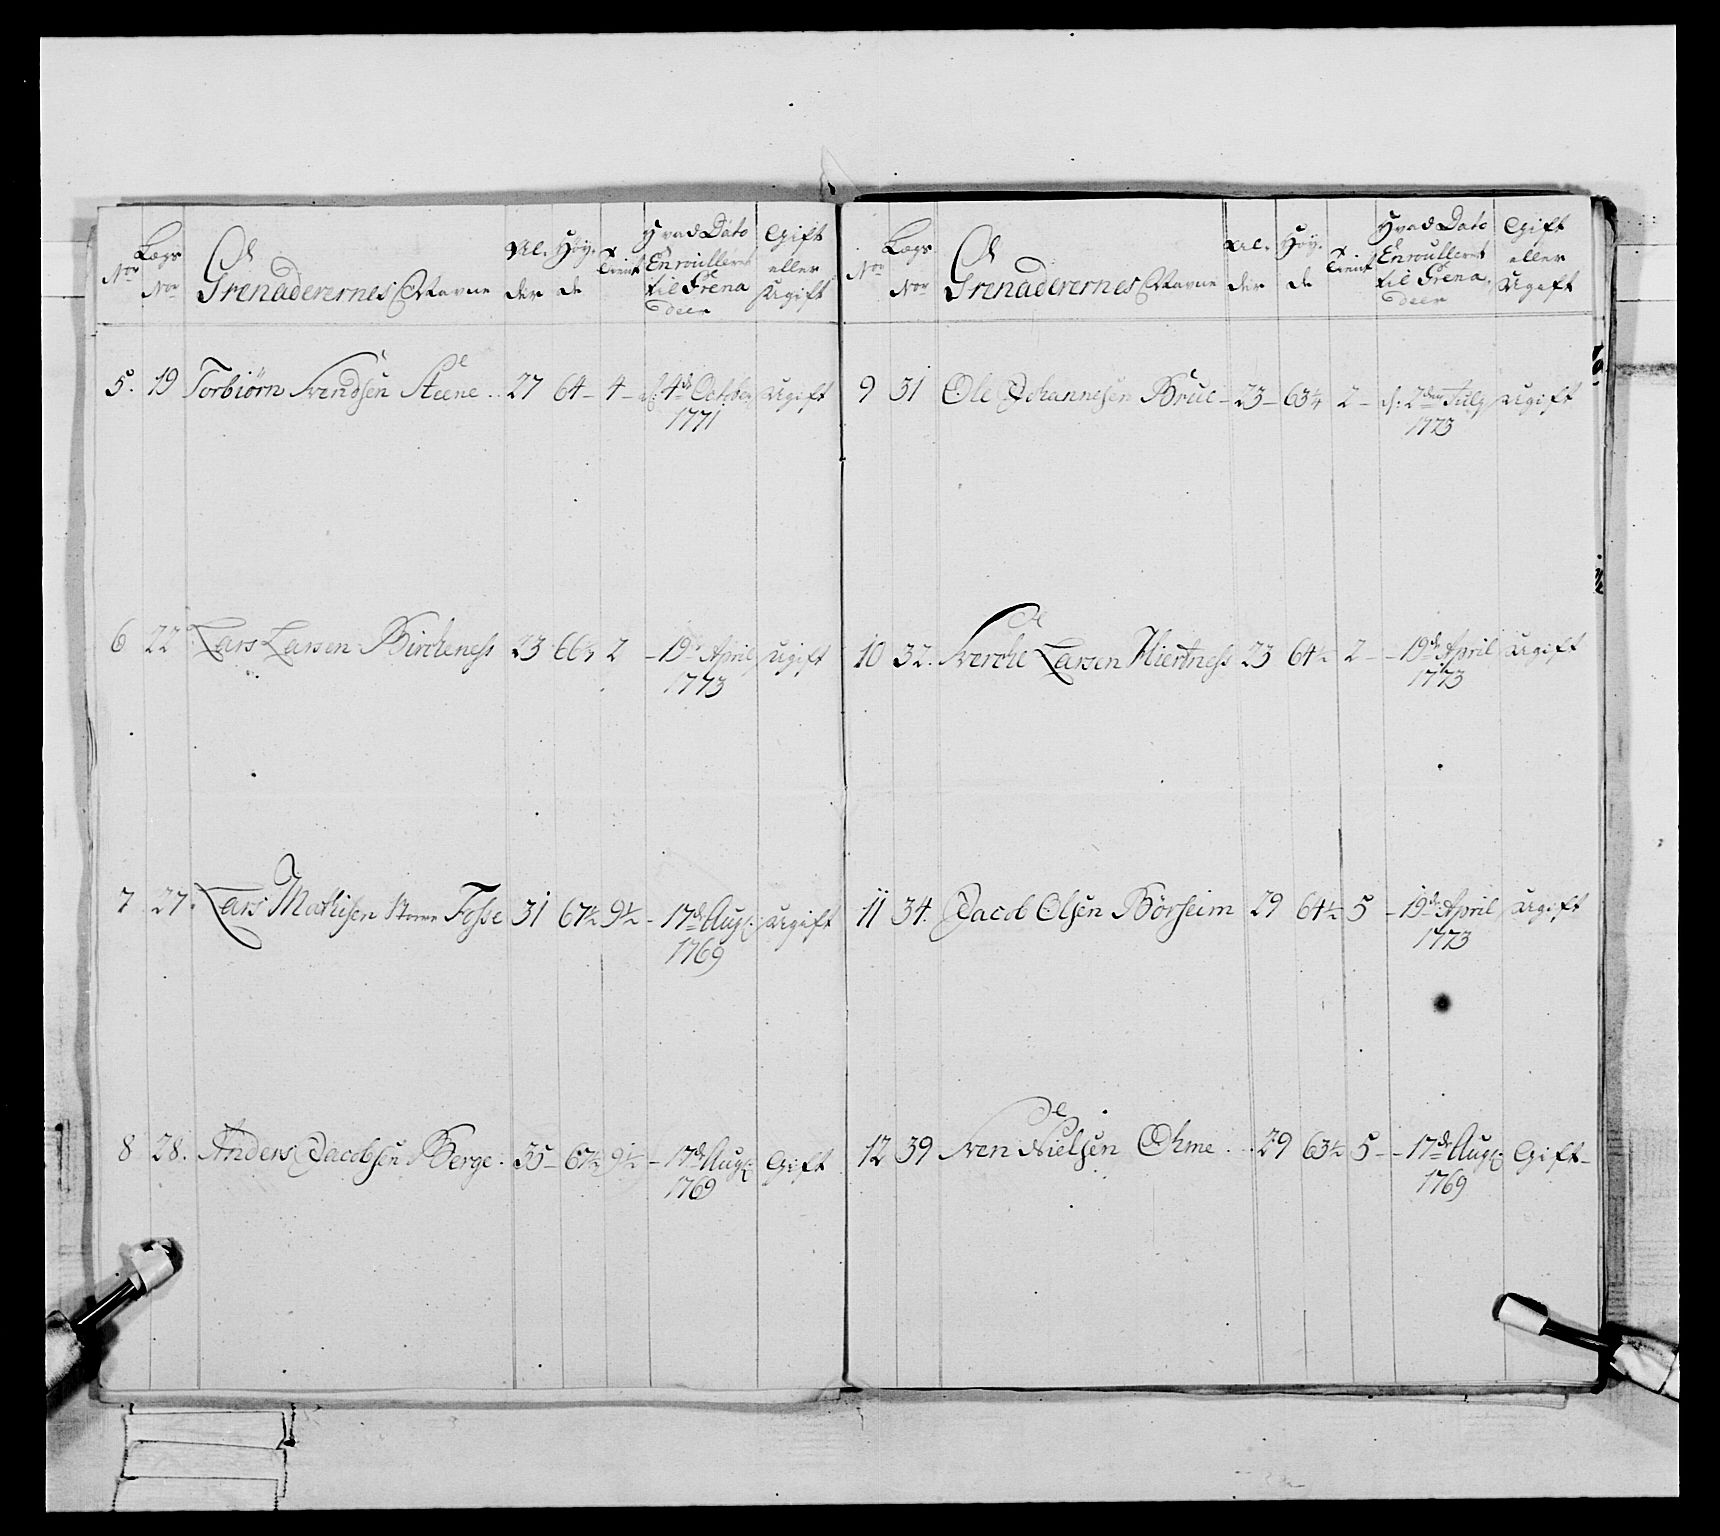 Nor Lægs Nor Grenaderernes Navne Al- der Höy- de Tient Hvad Dato Enroulleret til Grena deer Gift eller Ugift
5. 19 Torbiörn Svendsen Steene 27 64 - 4 - d: 4de Octobr Ugift
1771
6 22 Lars Larsen Birckeness 23 66½ 2 - 19de April Ugift
1773
7 27. Lars Mathisen Store Fosse 31 67½ 9½ - 17de Aug: Ugift
1769
8 28. Anders Jacobsen Berge. 35 - 67½ 9½ - 17de Aug: Gift
1769
Nor Lægs Nor Grenaderernes Navne Al- der Höy- de Tient Hvad Dato Enroulleret til Grena, deer Gift eller Ugift
9 31 Ole Johannesen Brue - 23 - 63¼ 2 - d: 2den July Ugift
1773
10 32. Sverche Larsen Hiertness 23 64½ 2 - - 19de April Ugift
1773
11 34. Jacob Olsen Börseim 29 64½ 5 - 19de April Ugift
1773
12 39 Sven Nielsen Ohme 29 63½ 5 - - 17de Aug: Gift -
1769